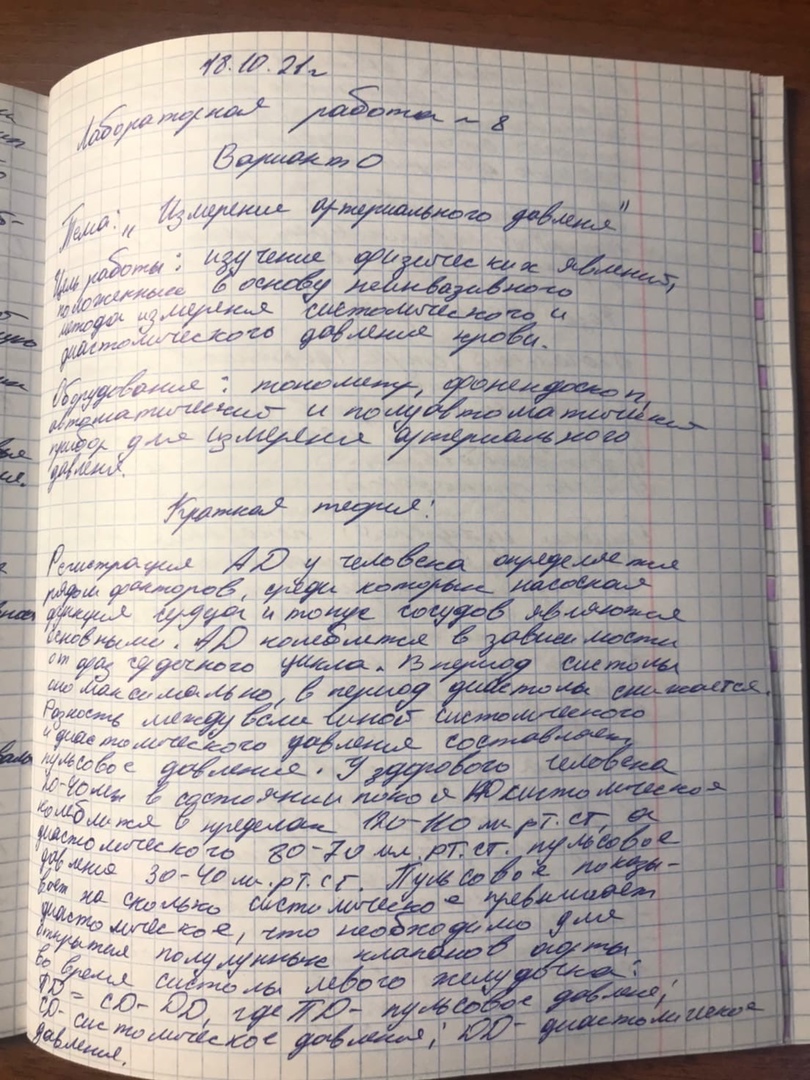 18.10.21г
Лабораторная работа ~ 8
Вариант 0
Тема: „Измерение артериального давленя"
Цель работы: изучение физических явлений,
положенных в основу неинвазивного
метода измереня систолического и
диастолического давления крови.
Оборудование: тонометр, фонендоскоп,
автоматический и полуавтоматический
прибор для измереня артериального
давленя.
Краткая теория:
Регистрация АД у человека определяется
рядом факторов, среди которых насосная
функция сердца и тонус сосудов являются
основными. АД колеблется в зависимости
от фаз сердечного цикла. В период систолы
оно максимально, в период диастолы снижается.
Разность между величиной систолического
и диастолического давления составляет
пульсовое давление. У здорового человека
20-40 лет в состоянии покоя АД систолическое
колеблится в пределах 120-110 м.рт.ст, а
диастолического 80-70 мл.рт.ст. пульсовое
давленя 30-40 м.рт.ст. Пульсовое показы-
вает на сколько систолическое превышает
диастолическое, что необходимо для
открытия полулунных клапанов аорты
во время систолы левого желудочка:
ПD = СD - DD, где ПD - пульсовое давленя;
СD - систолическое давленя; DD - диастолическое
давления.